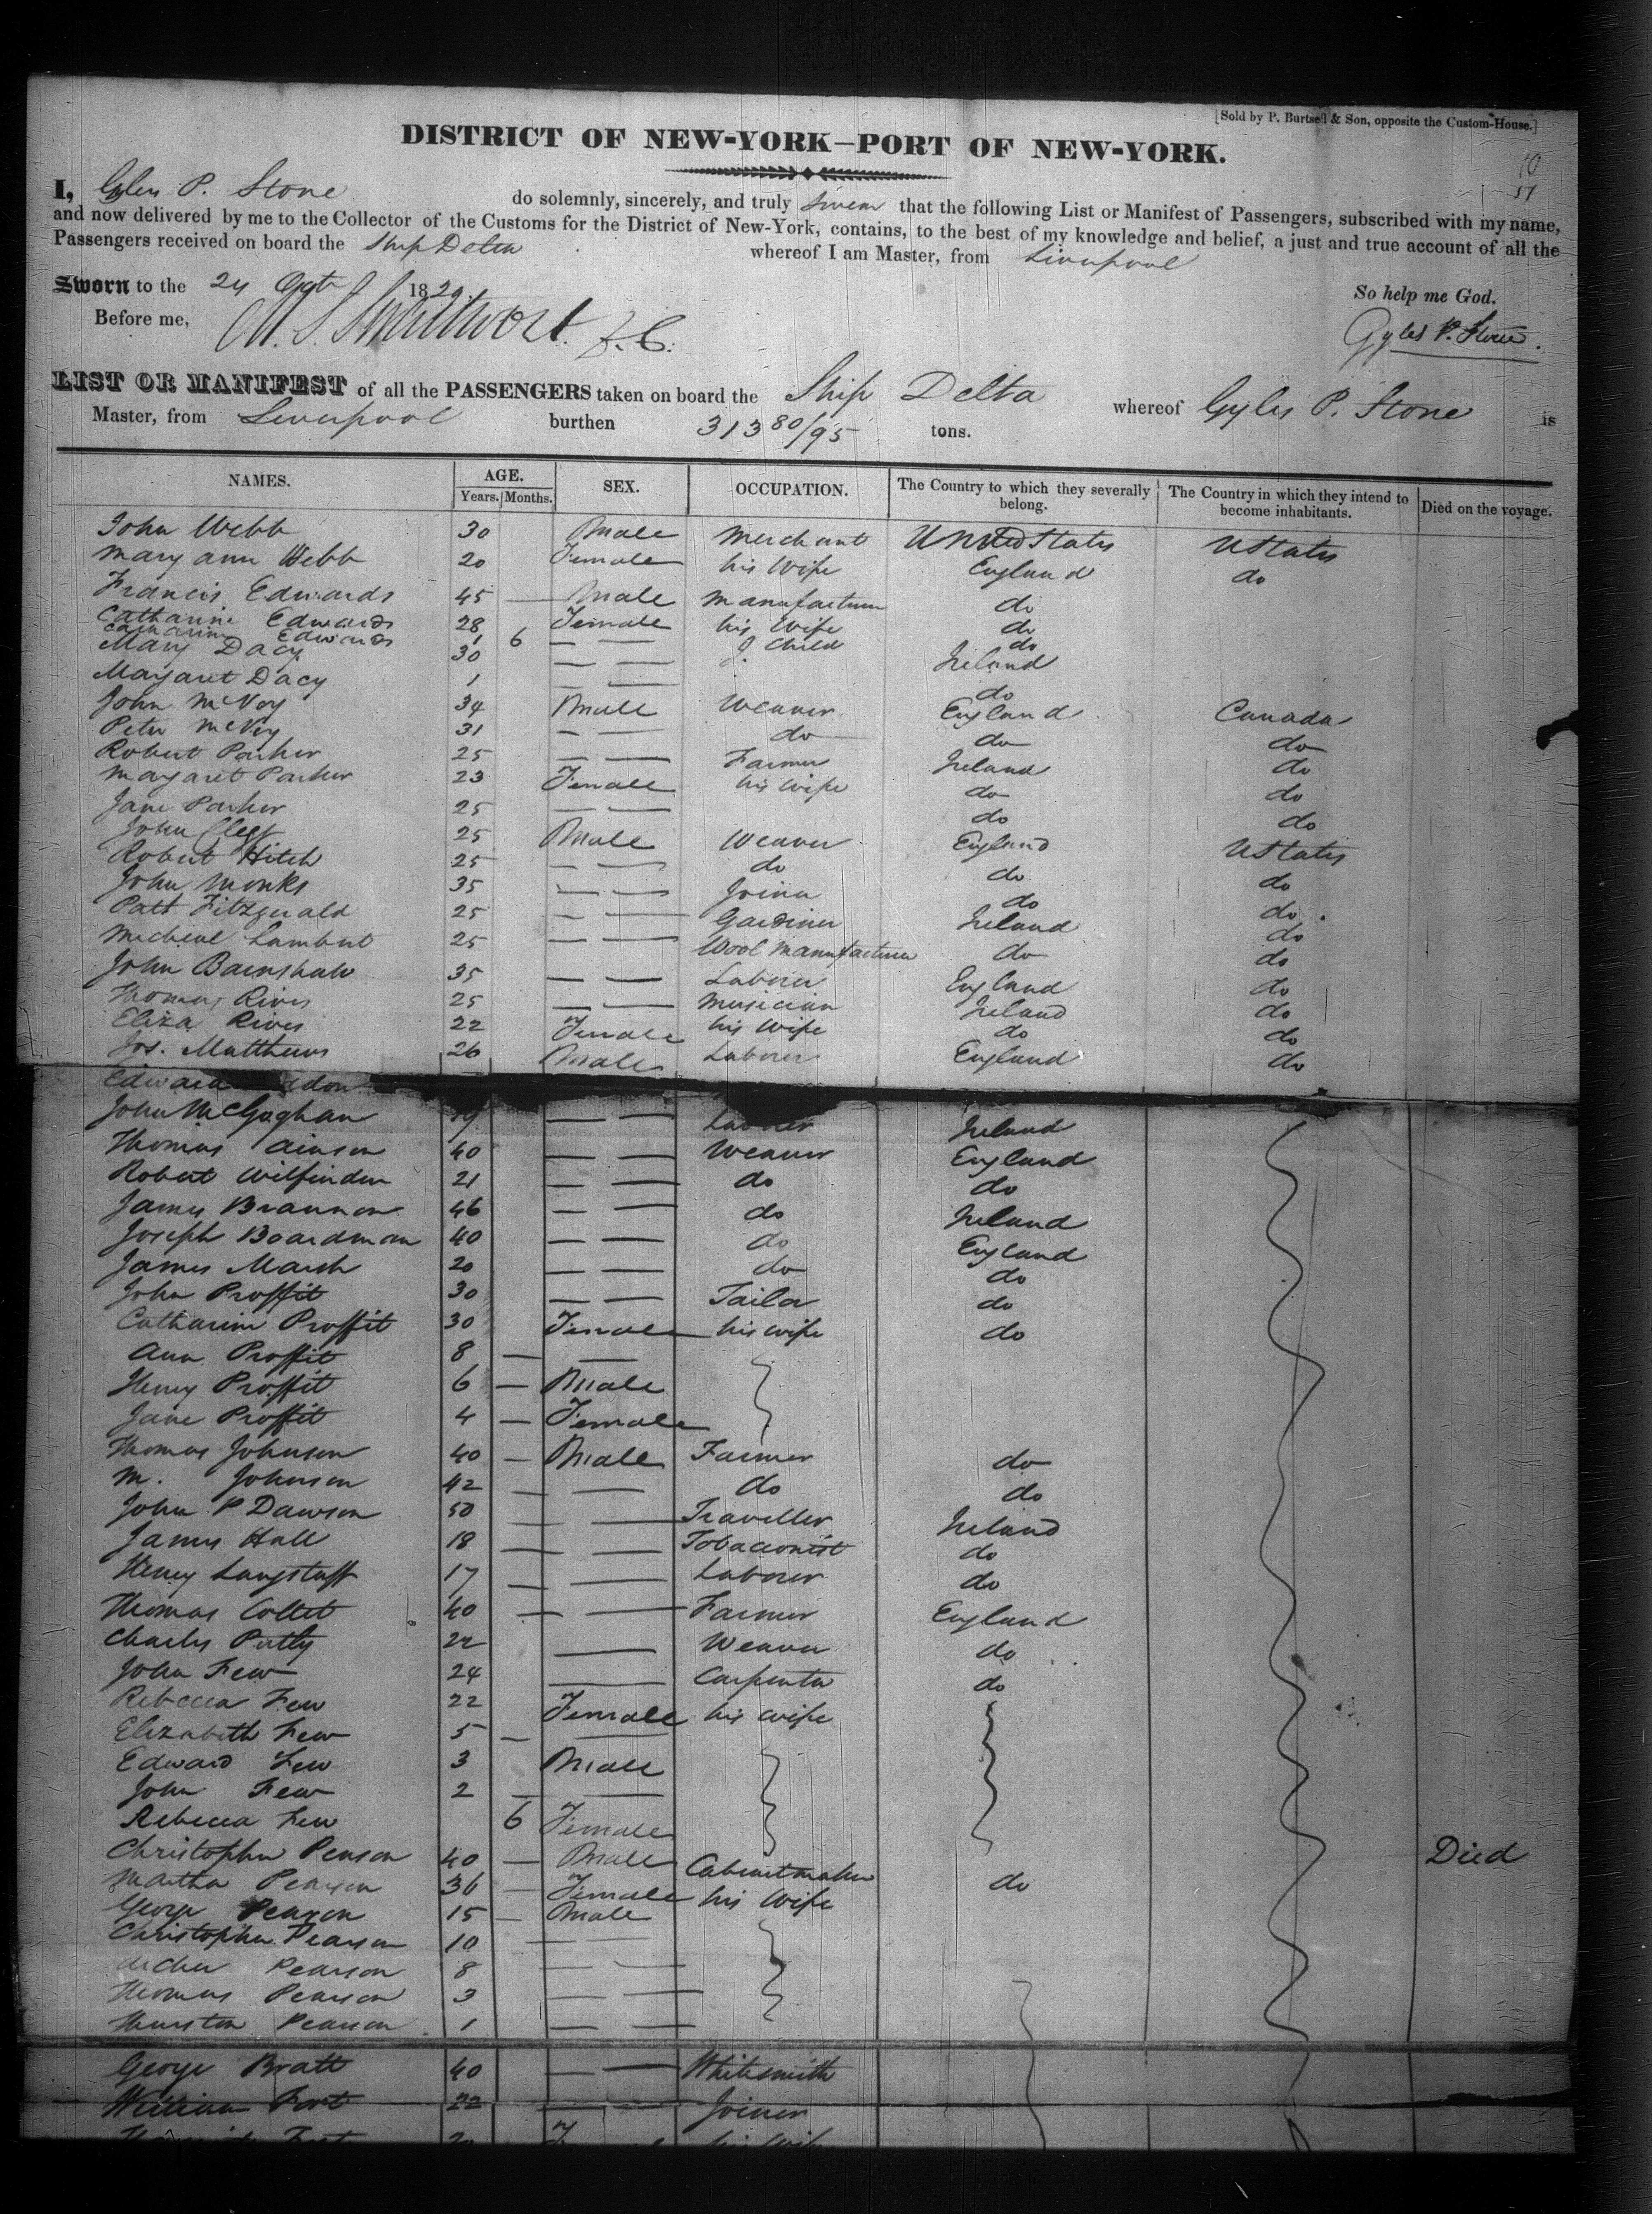 [Sold by P. Burtsell & Son, opposite the Custom-House.]
DISTRICT OF NEW-YORK—PORT OF NEW-YORK.
I, Gyles P. Stone do solemnly, sincerely, and truly swear that the following List or Manifest of Passengers, subscribed with my name,
and now delivered by me to the Collector of the Customs for the District of New-York, contains, to the best of my knowledge and belief, a just and true account of all the
Passengers received on board the Ship Delta whereof I am Master, from Liverpool
Sworn to the 24 1829 So help me God.
Before me, Gyles P. Stone.
LIST OR MANIFEST of all the PASSENGERS taken on board the Ship Delta whereof Gyles P. Stone is
Master, from Liverpool burthen 313 80/95 tons.
NAMES. AGE. Years. Months. SEX. OCCUPATION. The Country to which they severally belong. The Country in which they intend to become inhabitants. Died on the voyage.
John Webb 30 Male Merchant United States U States
Mary ann Webb 20 Female his Wife England do
Francis Edwards 45 — Male Manufacturer do
Catharine Edwards 28 Female his Wife do
Catharine Edwards 1 6 — — Child do
Mary Dacy 30 — — Ireland
Margaret Dacy 1 — — do
John McVoy 34 Male Weaver England Canada
Peter McVoy 31 — — do do do
Robert Parker 25 — — Farmer Ireland do
Margaret Parker 23 Female his wife do do
Jane Parker 25 — — do do
John Clegg 25 Male Weaver England U States
Robert Hitch 25 — — do do do
John Monks 35 — — Joiner do do
Patt Fitzgerald 25 — — Gardiner Ireland do
Micheal Lambert 25 — — Wool manufacturer do do
John Barnshaw 35 — — Laborer England do
Thomas Rives 25 — — Musician Ireland do
Eliza Rives 22 Female his Wife do do
Jos. Matthews 26 Male Laborer England do
Edward
John McGaghan 19 — — Laborer Ireland
Thomas 40 — — Weaver England
Robert Wilfinden 21 — — do do
James Brannon 46 — — do Ireland
Joseph Boardman 40 — — do England
James Marsh 20 — — do do
John Proffit 30 — — Tailor do
Catharine Proffit 30 Female his wife do
Ann Proffit 8 — —
Henry Proffit 6 — Male
Jane Proffit 4 — Female
Thomas Johnson 40 — Male Farmer do
M. Johnson 42 — — do do
John P Dawson 50 — — Traveller Ireland
James Hall 18 — — Tobacconist do
Henry Langstaff 17 — — Laborer do
Thomas Collet 40 — — Farmer England
Charles 22 — Weaver do
John Few 24 — Carpenter do
Rebecca Few 22 Female his wife
Elizabeth Few 5 — —
Edward Few 3 Male
John Few 2 — —
Rebecca Few 6 Female
Christopher Pearson 40 — Male Cabinetmaker Died
Martha Pearson 36 — Female his Wife do
George Pearson 15 — Male
Christopher Pearson 10 — —
Archer Pearson 8 — —
Thomas Pearson 3 — —
Thurston Pearson 1 — —
George Bratt 40 — — Whitesmith
William Fort 22 — — Joiner
his Wife